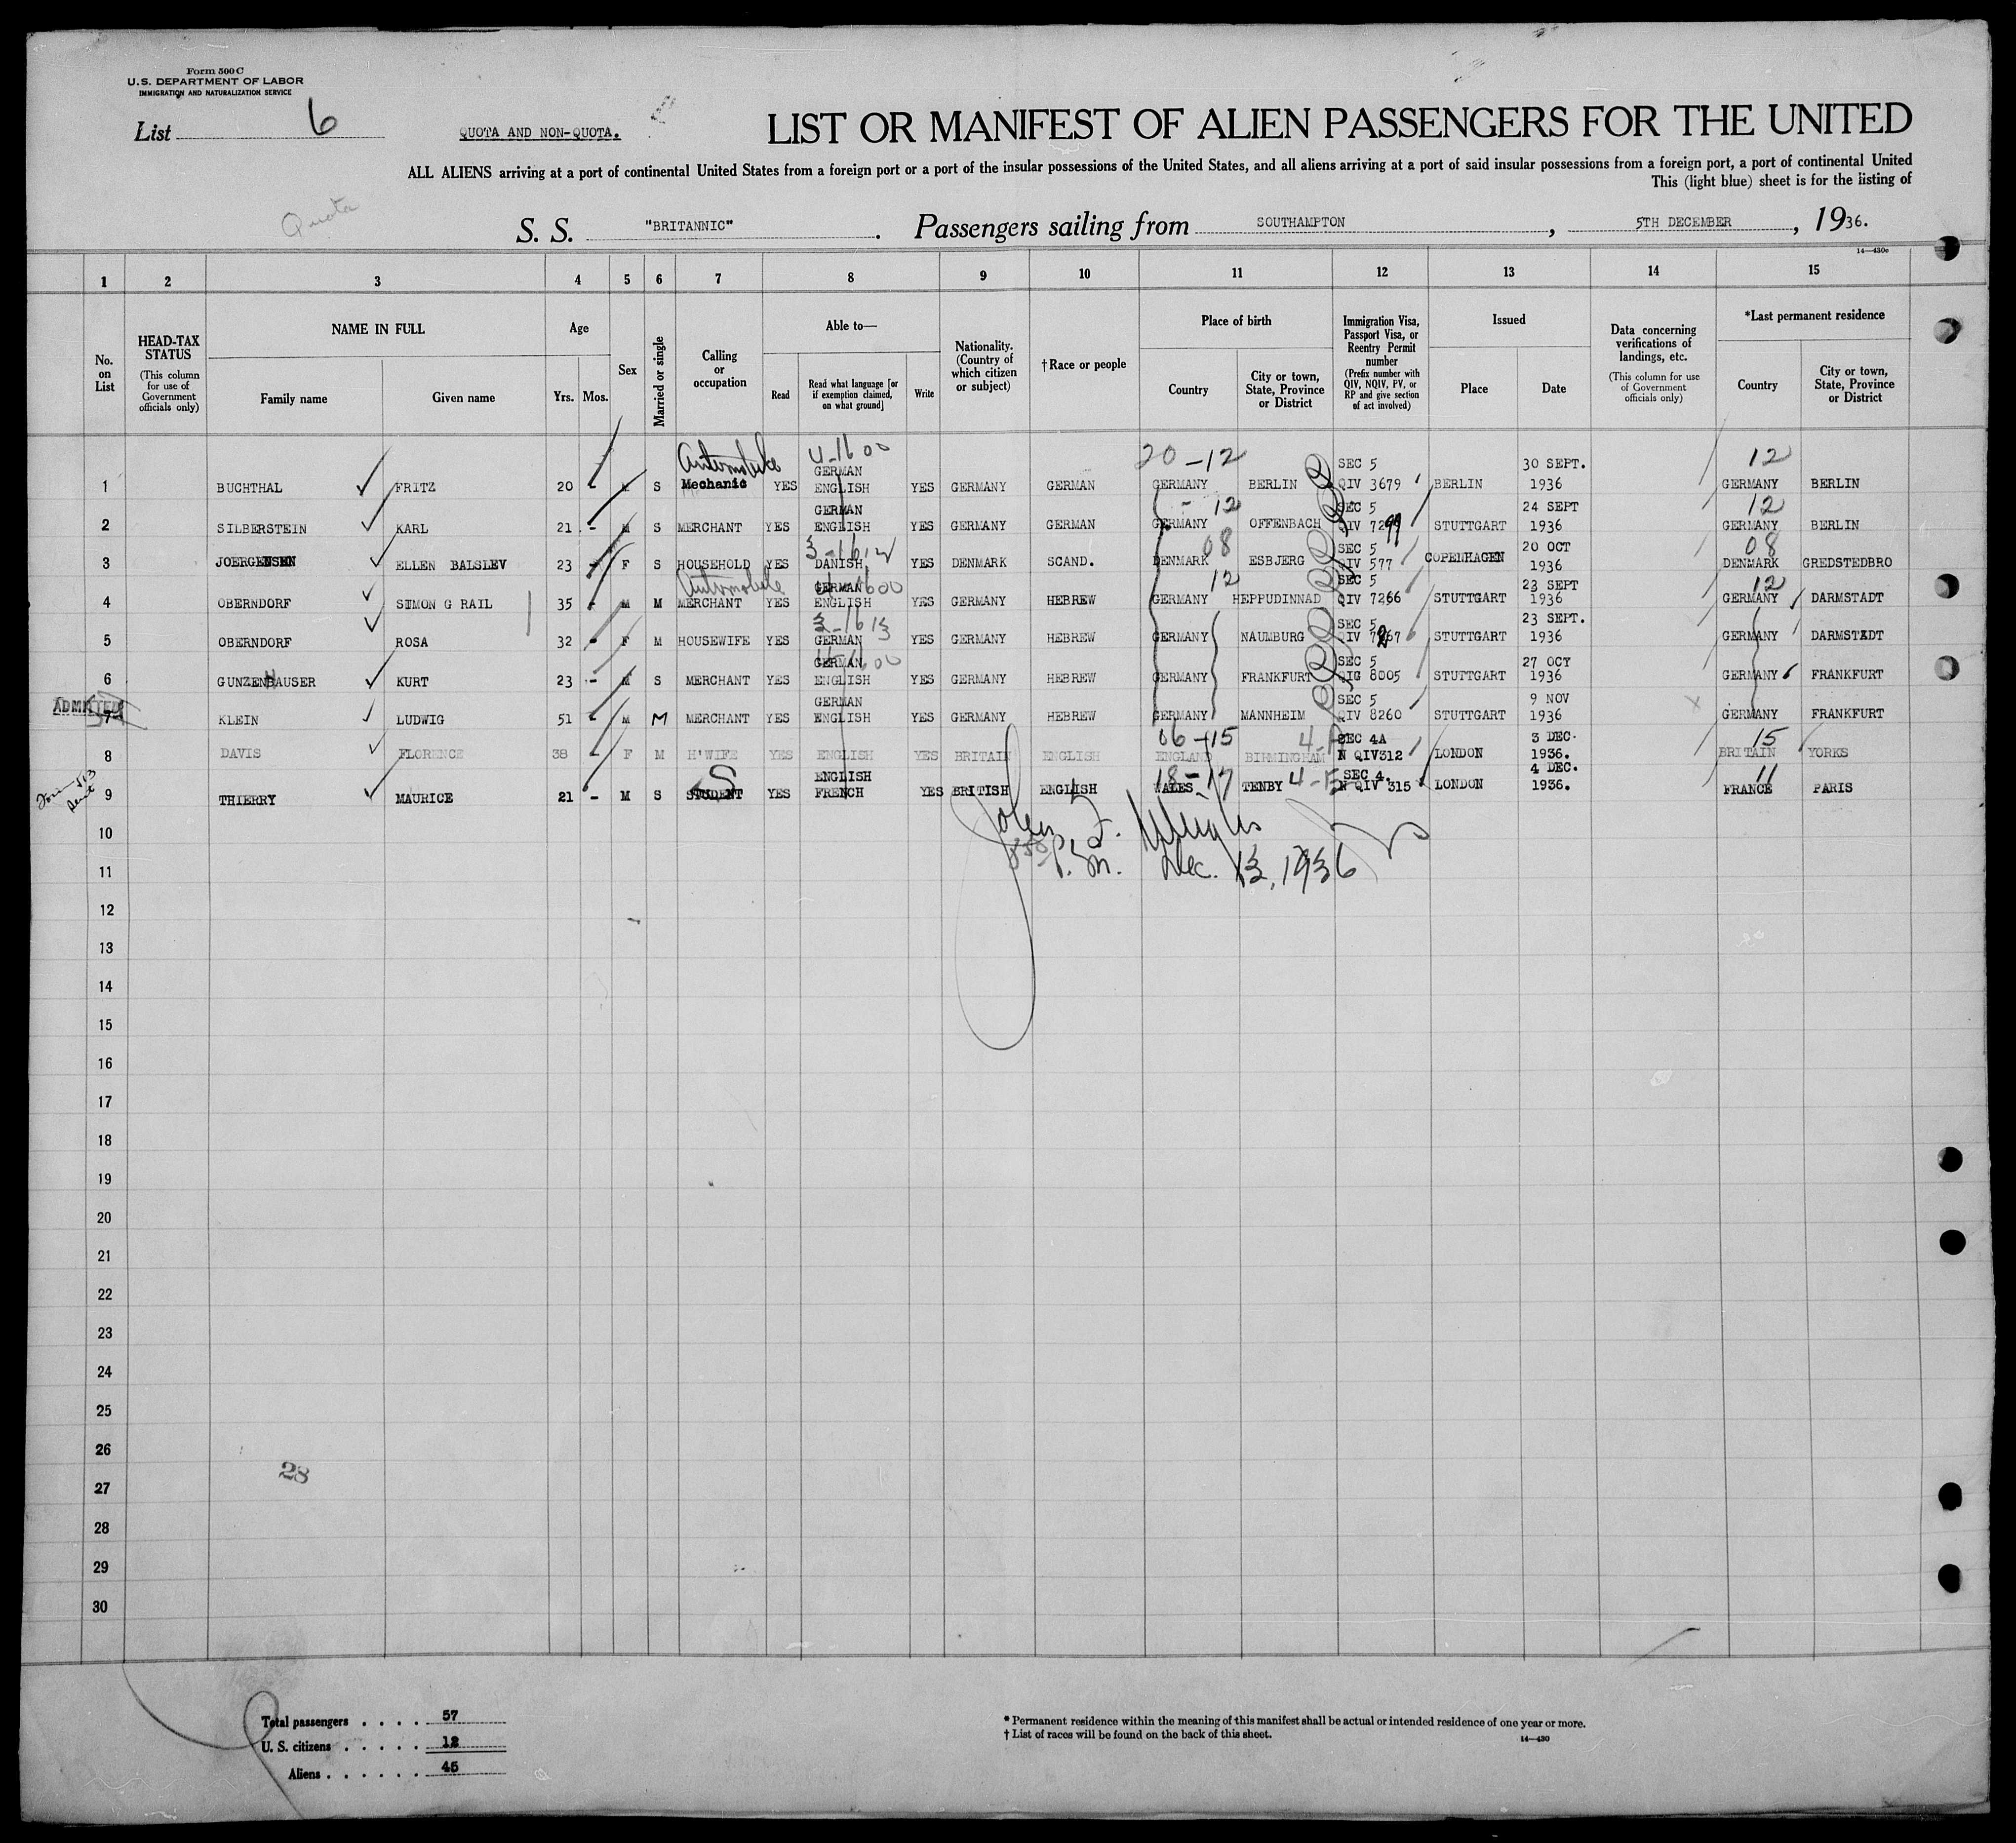 Form 500 C
U.S. DEPARTMENT OF LABOR
IMMIGRATION AND NATURALIZATION SERVICE
List 6
QUOTA AND NON-QUOTA.
LIST OR MANIFEST OF ALIEN PASSENGERS FOR THE UNITED
ALL ALIENS arriving at a port of continental United States from a foreign port or a port of the insular possessions of the United States, and all aliens arriving at a port of said insular possessions from a foreign port, a port of continental United
This (light blue) sheet is for the listing of
Quota
S. S. "BRITANNIC". Passengers sailing from SOUTHAMPTON, 5TH DECEMBER, 1936.
14—430c
1 2 3 4 5 6 7 8 9 10 11 12 13 14 15
No. on List
HEAD-TAX STATUS
(This column for use of Government officials only)
NAME IN FULL
Family name Given name
Age
Yrs. Mos.
Sex
Married or single
Calling or occupation
Able to—
Read
Read what language [or if exemption claimed, on what ground]
Write
Nationality. (Country of which citizen or subject)
† Race or people
Place of birth
Country
City or town, State, Province or District
Immigration Visa, Passport Visa, or Reentry Permit number
(Prefix number with QIV, NQIV, PV, or RP and give section of act involved)
Issued
Place Date
Data concerning verifications of landings, etc.
(This column for use of Government officials only)
*Last permanent residence
Country
City or town, State, Province or District
Automobile 4-1600 GERMAN 20-12 SEC 5 30 SEPT. 12
1 BUCHTHAL FRITZ 20 - M S Mechanic YES ENGLISH YES GERMANY GERMAN GERMANY BERLIN QIV 3679 BERLIN 1936 GERMANY BERLIN
GERMAN - 12 SEC 5 24 SEPT 12
2 SILBERSTEIN KARL 21 - M S MERCHANT YES ENGLISH YES GERMANY GERMAN GERMANY OFFENBACH QIV 7299 STUTTGART 1936 GERMANY BERLIN
08 SEC 5 20 OCT 08
3 JOERGENSEN ELLEN BALSLEV 23 - F S HOUSEHOLD YES DANISH YES DENMARK SCAND. DENMARK ESBJERG QIV 577 COPENHAGEN 1936 DENMARK GREDSTEDBRO
Automobile GERMAN 12 SEC 5 23 SEPT 12
4 OBERNDORF SIMON G RAIL 35 - M M MERCHANT YES ENGLISH YES GERMANY HEBREW GERMANY HEPPUDINNAD QIV 7266 STUTTGART 1936 GERMANY DARMSTADT
3-1613 SEC 5 23 SEPT.
5 OBERNDORF ROSA 32 - F M HOUSEWIFE YES GERMAN YES GERMANY HEBREW GERMANY NAUMBURG QIV 7267 STUTTGART 1936 GERMANY DARMSTADT
GERMAN SEC 5 27 OCY
6 GUNZENHAUSER KURT 23 - M S MERCHANT YES ENGLISH YES GERMANY HEBREW GERMANY FRANKFURT QIG 8005 STUTTGART 1936 GERMANY FRANKFURT
ADMITTED GERMAN SEC 5 9 NOV
7 KLEIN LUDWIG 51 - M M MERCHANT YES ENGLISH YES GERMANY HEBREW GERMANY MANNHEIM QIV 8260 STUTTGART 1936 GERMANY FRANKFURT
06-15 SEC 4A 3 DEC. 15
8 DAVIS FLORENCE 38 - F M H'WIFE YES ENGLISH YES BRITAIN ENGLISH ENGLAND BIRMINGHAM N QIV312 LONDON 1936. BRITAIN YORKS
S ENGLISH 18-17 SEC 4. 4 DEC. 11
9 THIERRY MAURICE 21 - M S STUDENT YES FRENCH YES BRITISH ENGLISH WALES TENBY N QIV 315 LONDON 1936. FRANCE PARIS
10
P.M. Dec. 13, 1936
11
12
13
14
15
16
17
18
19
20
21
22
23
24
25
26
28
27
28
29
30
Total passengers . . . . 57
U. S. citizens . . . . . 12
Aliens . . . . . . 45
* Permanent residence within the meaning of this manifest shall be actual or intended residence of one year or more.
† List of races will be found on the back of this sheet.
14—430